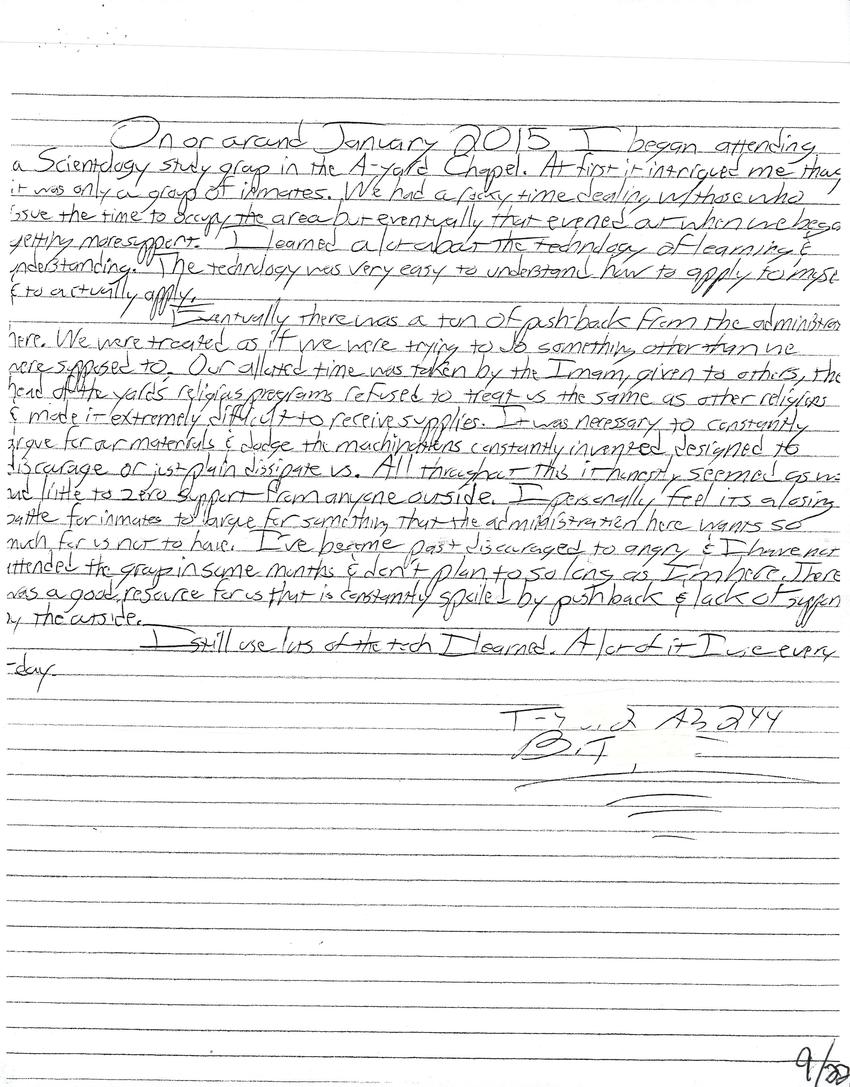 On or arand January 2015, I began attending
a Scientology study group in the A-yard Chapel. At first it intrigued me that
it was only a group of inmates. We had a rocky time dealing w/those who
issue the time to occupy the area but eventually that evened out when we bega
getting more support. I learned a lot about the technology of learning &
understanding. The technology was very easy to understand how to apply to myse
& to actually apply.
Eventually there was a ton of push-back from the administra
here. We were treated as if we were trying to do something other than we
were supposed to. Our allotted time was taken by the Imam, given to others, the
head of the yard's religious programs refused to treat us the same as other religions
& made it extremely difficult to receive supplies. It was necessary to constantly
argue for our materials & dodge the machinations constantly invented, designed to
discourage or just plain dissipate us. All throughout this it honestly seemed as we
had little to zero support from anyone outside. I personally feel its a losing
battle for inmates to argue for something that the administration here wants so
much for us not to have. I've become past discouraged to angry & I have not
attended the group in some months & don't plan to so long as I'm here. There
was a good resource for us that is constantly spoiled by pushback & lack of suppor
by the outside.
I still use lots of the tech I learned. A lot of it I use every
-day.
9/22